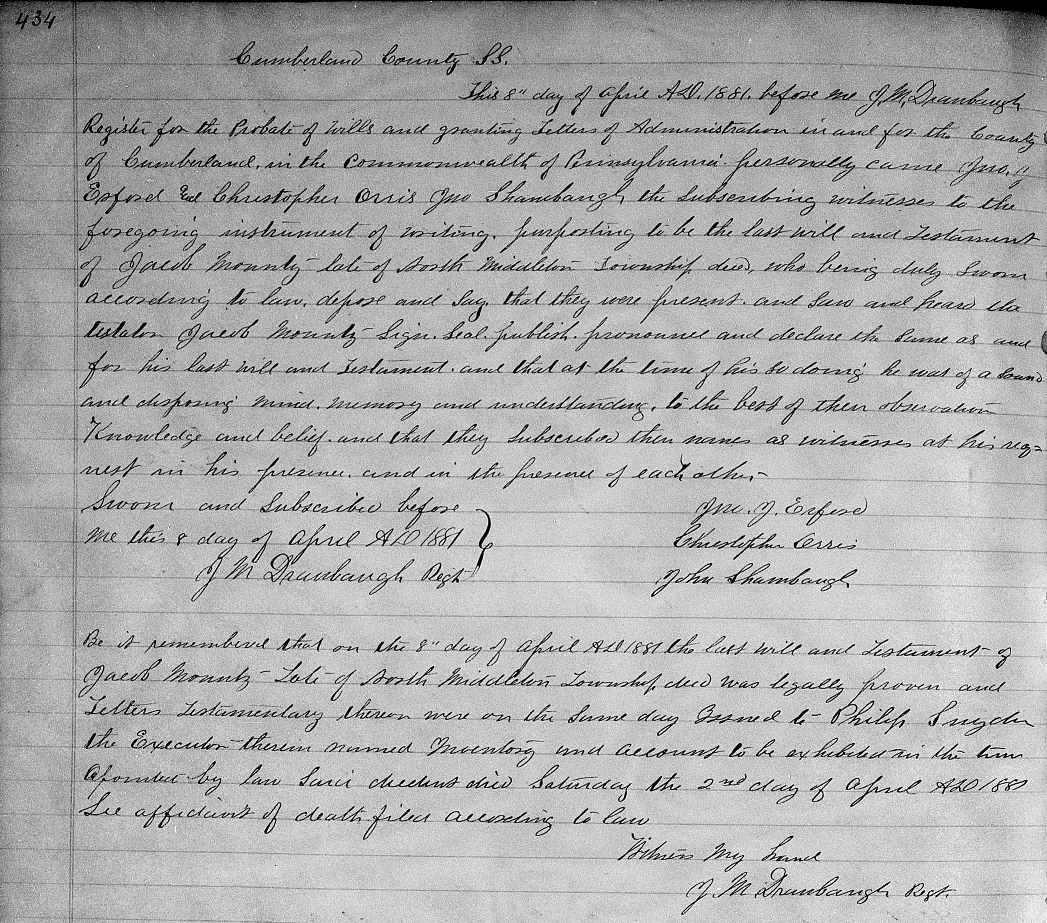 434
Cumberland County SS.
This 8" day of April A.D. 1881. before me J. M. Drawbaugh
Register for the Probate of Wills and granting Letters of Administration in and for the County
of Cumberland, in the Commonwealth of Pennsylvania personally came Jno. J
Erford and Christopher Orris Jno Shambaugh, the subscribing witnesses to the
foregoing instrument of writing, purporting to be the last will and Testament
of Jacob Mountz late of North Middleton Township decd, who being duly Sworn
according to law, depose and say, that they were present. and saw and heard the
testator Jacob Mountz Sign. Seal. publish. pronounce and declare the same as and
for his last will and Testament. and that at the time of his so doing he was of a sound
and disposing mind. memory and understanding, to the best of their observation
Knowledge and belief. and that they subscribed their names as witnesses at his req=
uest in his presence. and in the presence of each other.
Sworn and Subscribed before
me this 8 day of April A D 1881
J M Drawbaugh Regt
Jno. J. Erford
Christopher Orris
John Shambaugh
Be it remembered that on the 8" day of April A D 1881 the last will and Testament of
Jacob Mountz Late of North Middleton Township, decd was legally proven and
Letters Testamentary thereon were on the same day Issued to Philip Snyder
the Executor therein named Inventory and account to be exhibited in the time
by law Said decedent died Saturday the 2nd day of April A D 1881
See affidavit of death filed according to law
Witness My hand
J M Drawbaugh Regt.